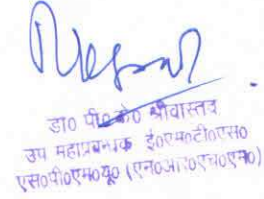 डा० पी० के० श्रीवास्तव
उप महाप्रबन्धक ई०एम०टी०एस०
एस०पी०एम०यू० (एन०आर०एच०एम०)